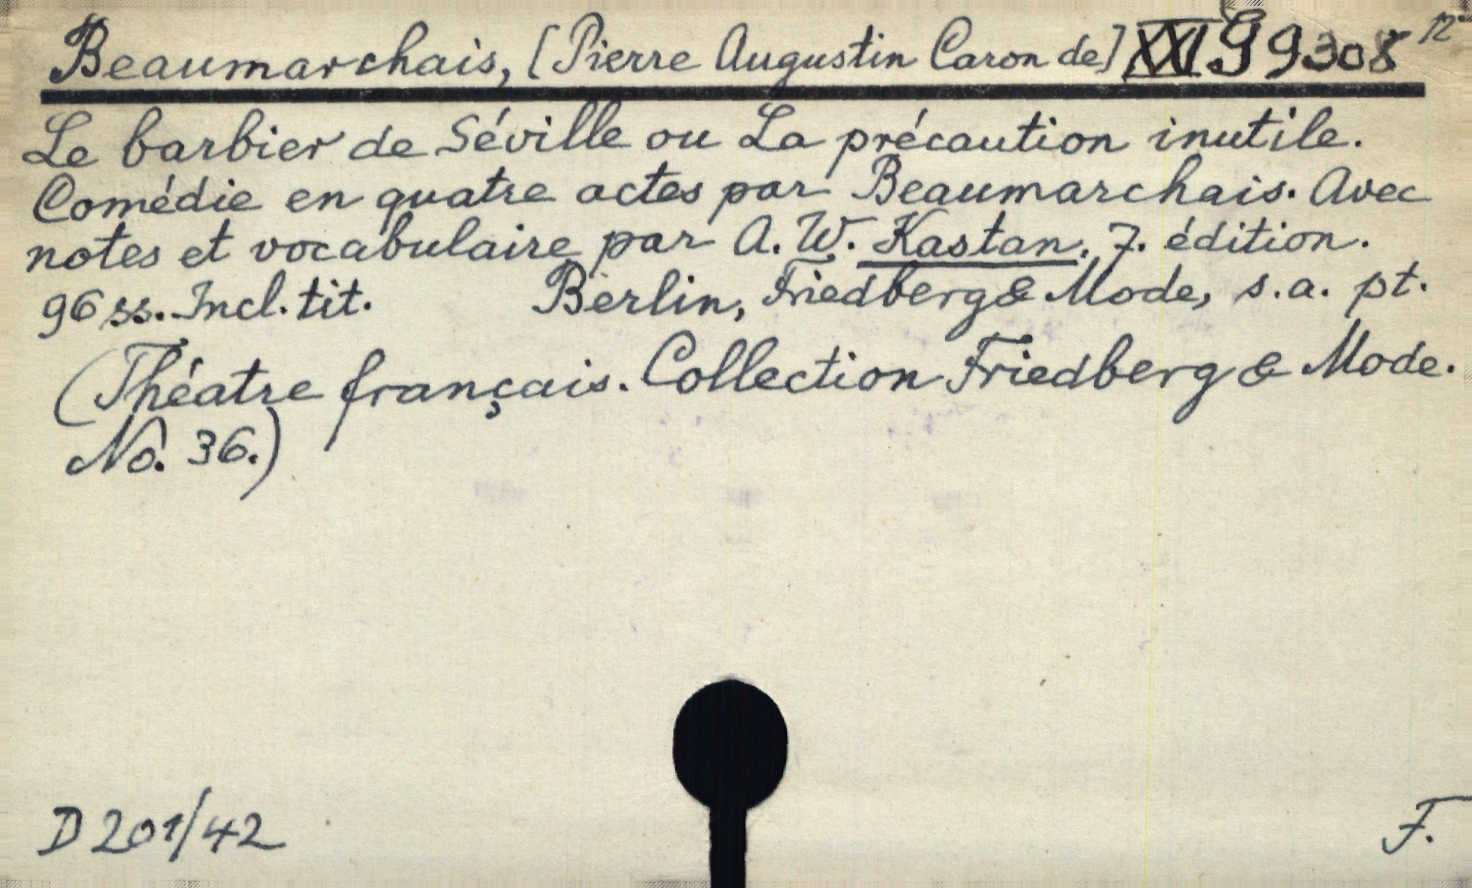 Beaumarchais, [Pierre Augustin Caron de] XXI. 99308
Le barbier de Séville ou La précaution inutile.
Comédie en quatre actes par Beaumarchais. Avec
notes et vocabulaire par A. W. Kastan. 7. édition.
96 ss. Incl. tit. Berlin, Friedberg & Mode, s. a. pt.
(Théatre français. Collection Friedberg & Mode.
No. 36.)
D 201/42
F.